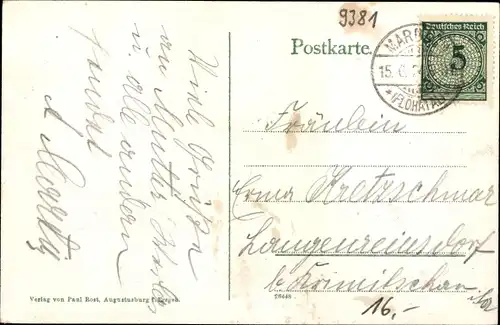 9381
Postkarte.
Deutsches Reich
5
15. 6.
(FLÖHATAL)
Viele Grüße
an Mutter
u. alle andern
sendet
Fräulein
Erna Kretzschmar
Langenreinsdorf
b. Krimitschau i. Sa.
Verlag von Paul Rost, Augustusburg i. Erzgeb.
16,-